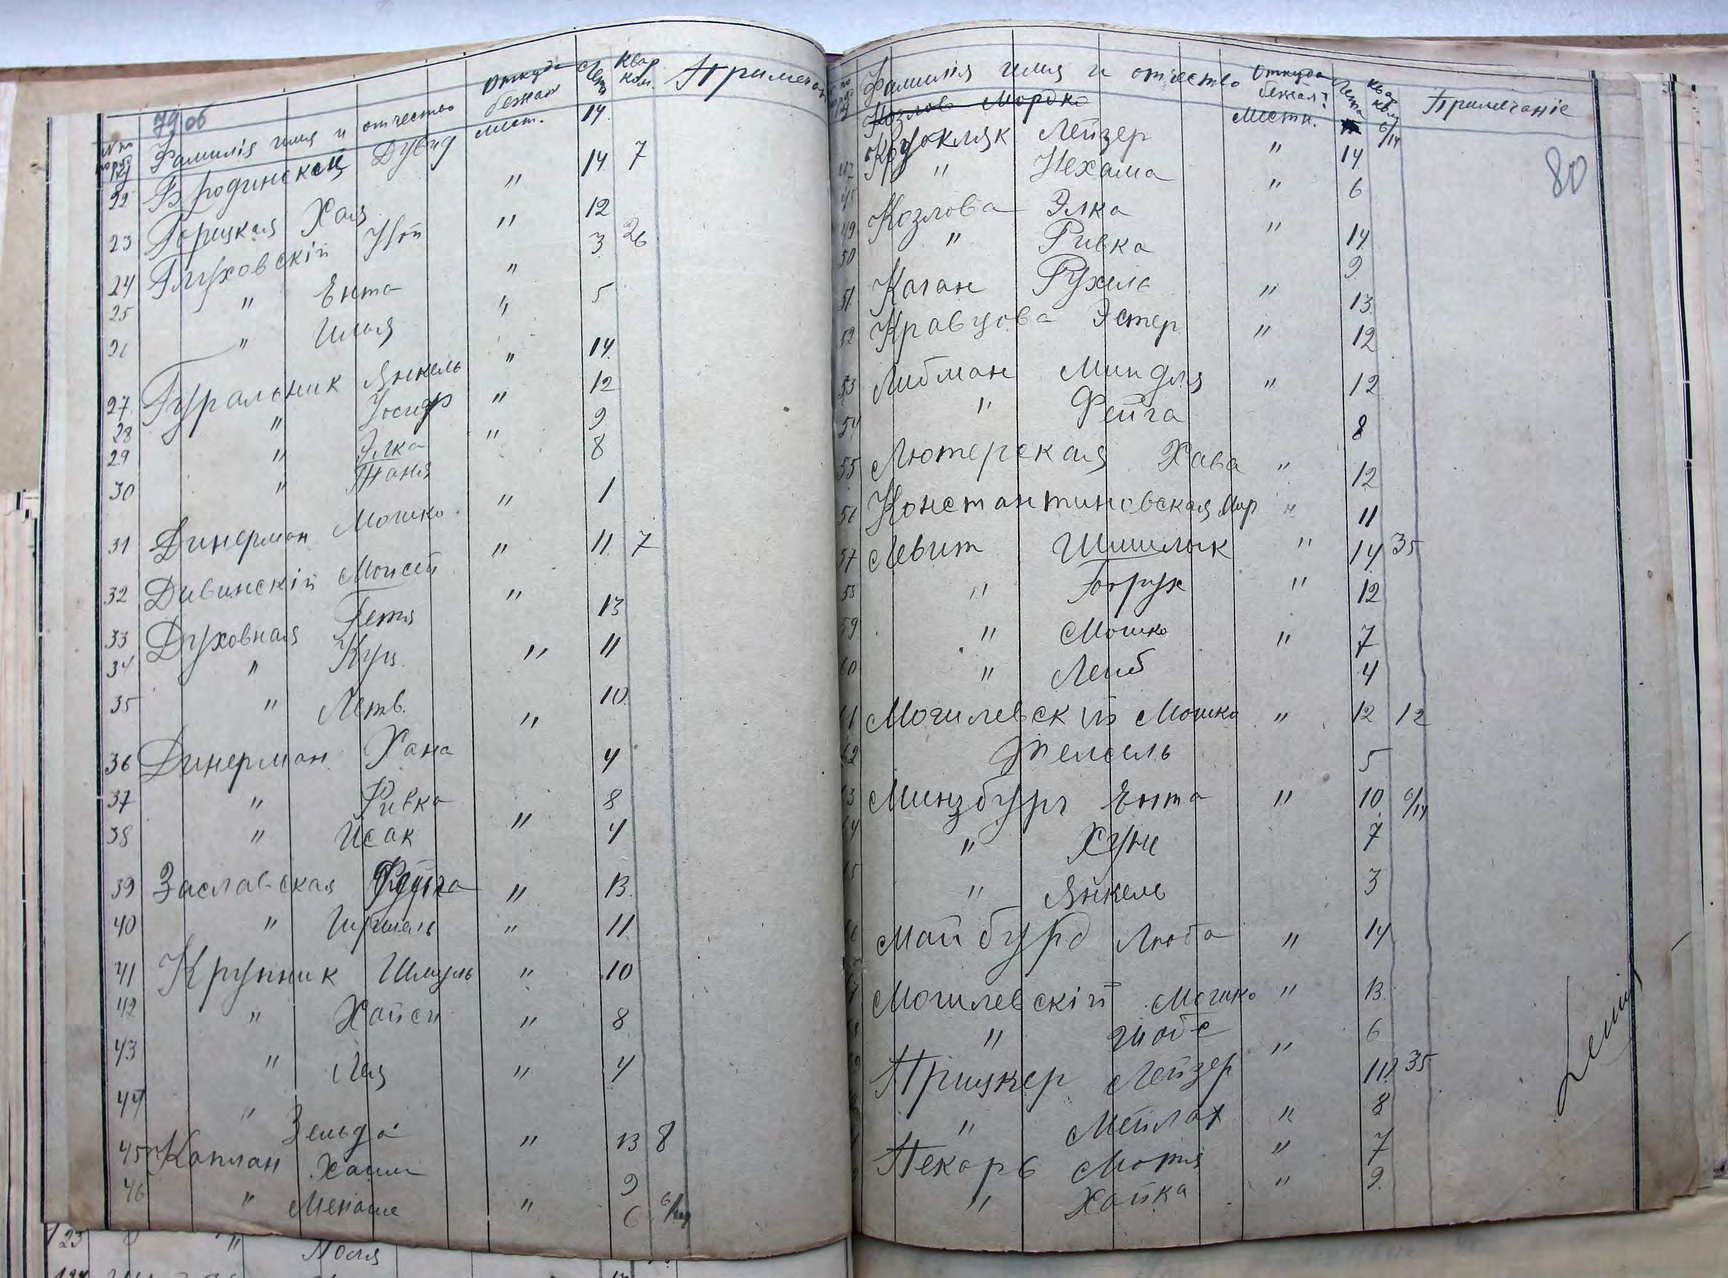 79 об
№ по пор. Фамилія имя и отчество Откуда бежал Лет Квар ком. Примечан
22 Бродинский Дувид мест. 14
23 Горицкая Хая " 14 7
24 Глуховскій Ной " 12
25 " Ента " 3 26
26 " Илья " 5
27 Гуральник Янкель " 14
28 " Иосиф " 12
29 " Элка " 9
30 " Таня 8
31 Динерман Мошко " 1
32 Дивинскій Мойсей " 11 7
33 Духовная Гетя " 13
34 " Куц " 11
35 " Летв. 10
36 Динерман Хана " 4
37 " Ривка 8
38 " Исак " 4
39 Заславская Фейга " 13
40 " " 11
41 Крупник Шмуль " 10
42 " Хайси " 8
43 " Лея " 4
44 " Зельда
45 Каплан Хаим " 13 8
46 " Менаше " 9
6 6/14
Фамилія имя и отчество Откуда бежал? Лета Ква ком Примечаніе
80
Козлов Мордко
Круокляк Лейзер Местн. 6/14
47 " Нехама " 14
48 Козлова Элка " 6
49 " Ривка " 14
50 9
51 Каган Рухила " 13
52 Кравцова Эстер " 12
53 Либман Миндля " 12
54 " Фейга 8
55 Лютерская Хава " 12
56 Константиновская Мир " 11
57 Левит Шмилык " 14 35
58 " Борух " 12
59 " Мошко " 7
60 " Лейб 4
61 Могилевскій Мошко " 12 12
62 Тельсиль 5
63 Минзбург Ента " 10 6/14
64 " Хуне 7
65 " Янкель 3
66 Майбурд Люба " 14
Могилевскій Мошко " 13
" 6
Прицкер Лейзер " 11 35
" Мейлах " 8
Пекарь Мотя " 7
" Хайка " 9
123 "